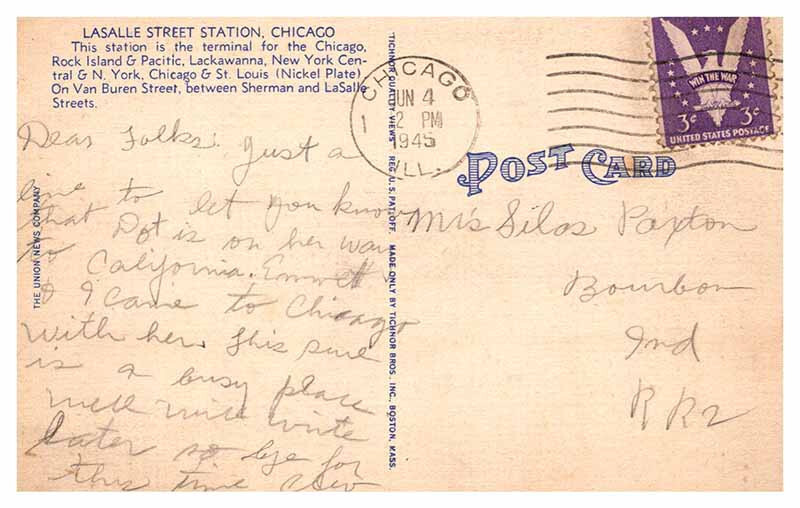 LASALLE STREET STATION, CHICAGO
This station is the terminal for the Chicago,
Rock Island & Pacific, Lackawanna, New York Cen-
tral & N. York, Chicago & St. Louis (Nickel Plate)
On Van Buren Street, between Sherman and LaSalle
Streets.
Dear Folks: Just a
line to let you know
that Dot is on her way
to California. Emmett
& I came to Chicago
with her. This sure
is a busy place
well will write
later so bye for
this time
THE UNION NEWS COMPANY
TICHNOR QUALITY VIEWS REG. U. S. PAT. OFF. MADE ONLY BY TICHNOR BROS. INC., BOSTON, MASS.
CHICAGO
JUN 4
2 PM
1945
ILL.
WIN THE WAR
3¢ 3¢
UNITED STATES POSTAGE
POST CARD
Mrs Silas Paxton
Bourbon
Ind
RR2